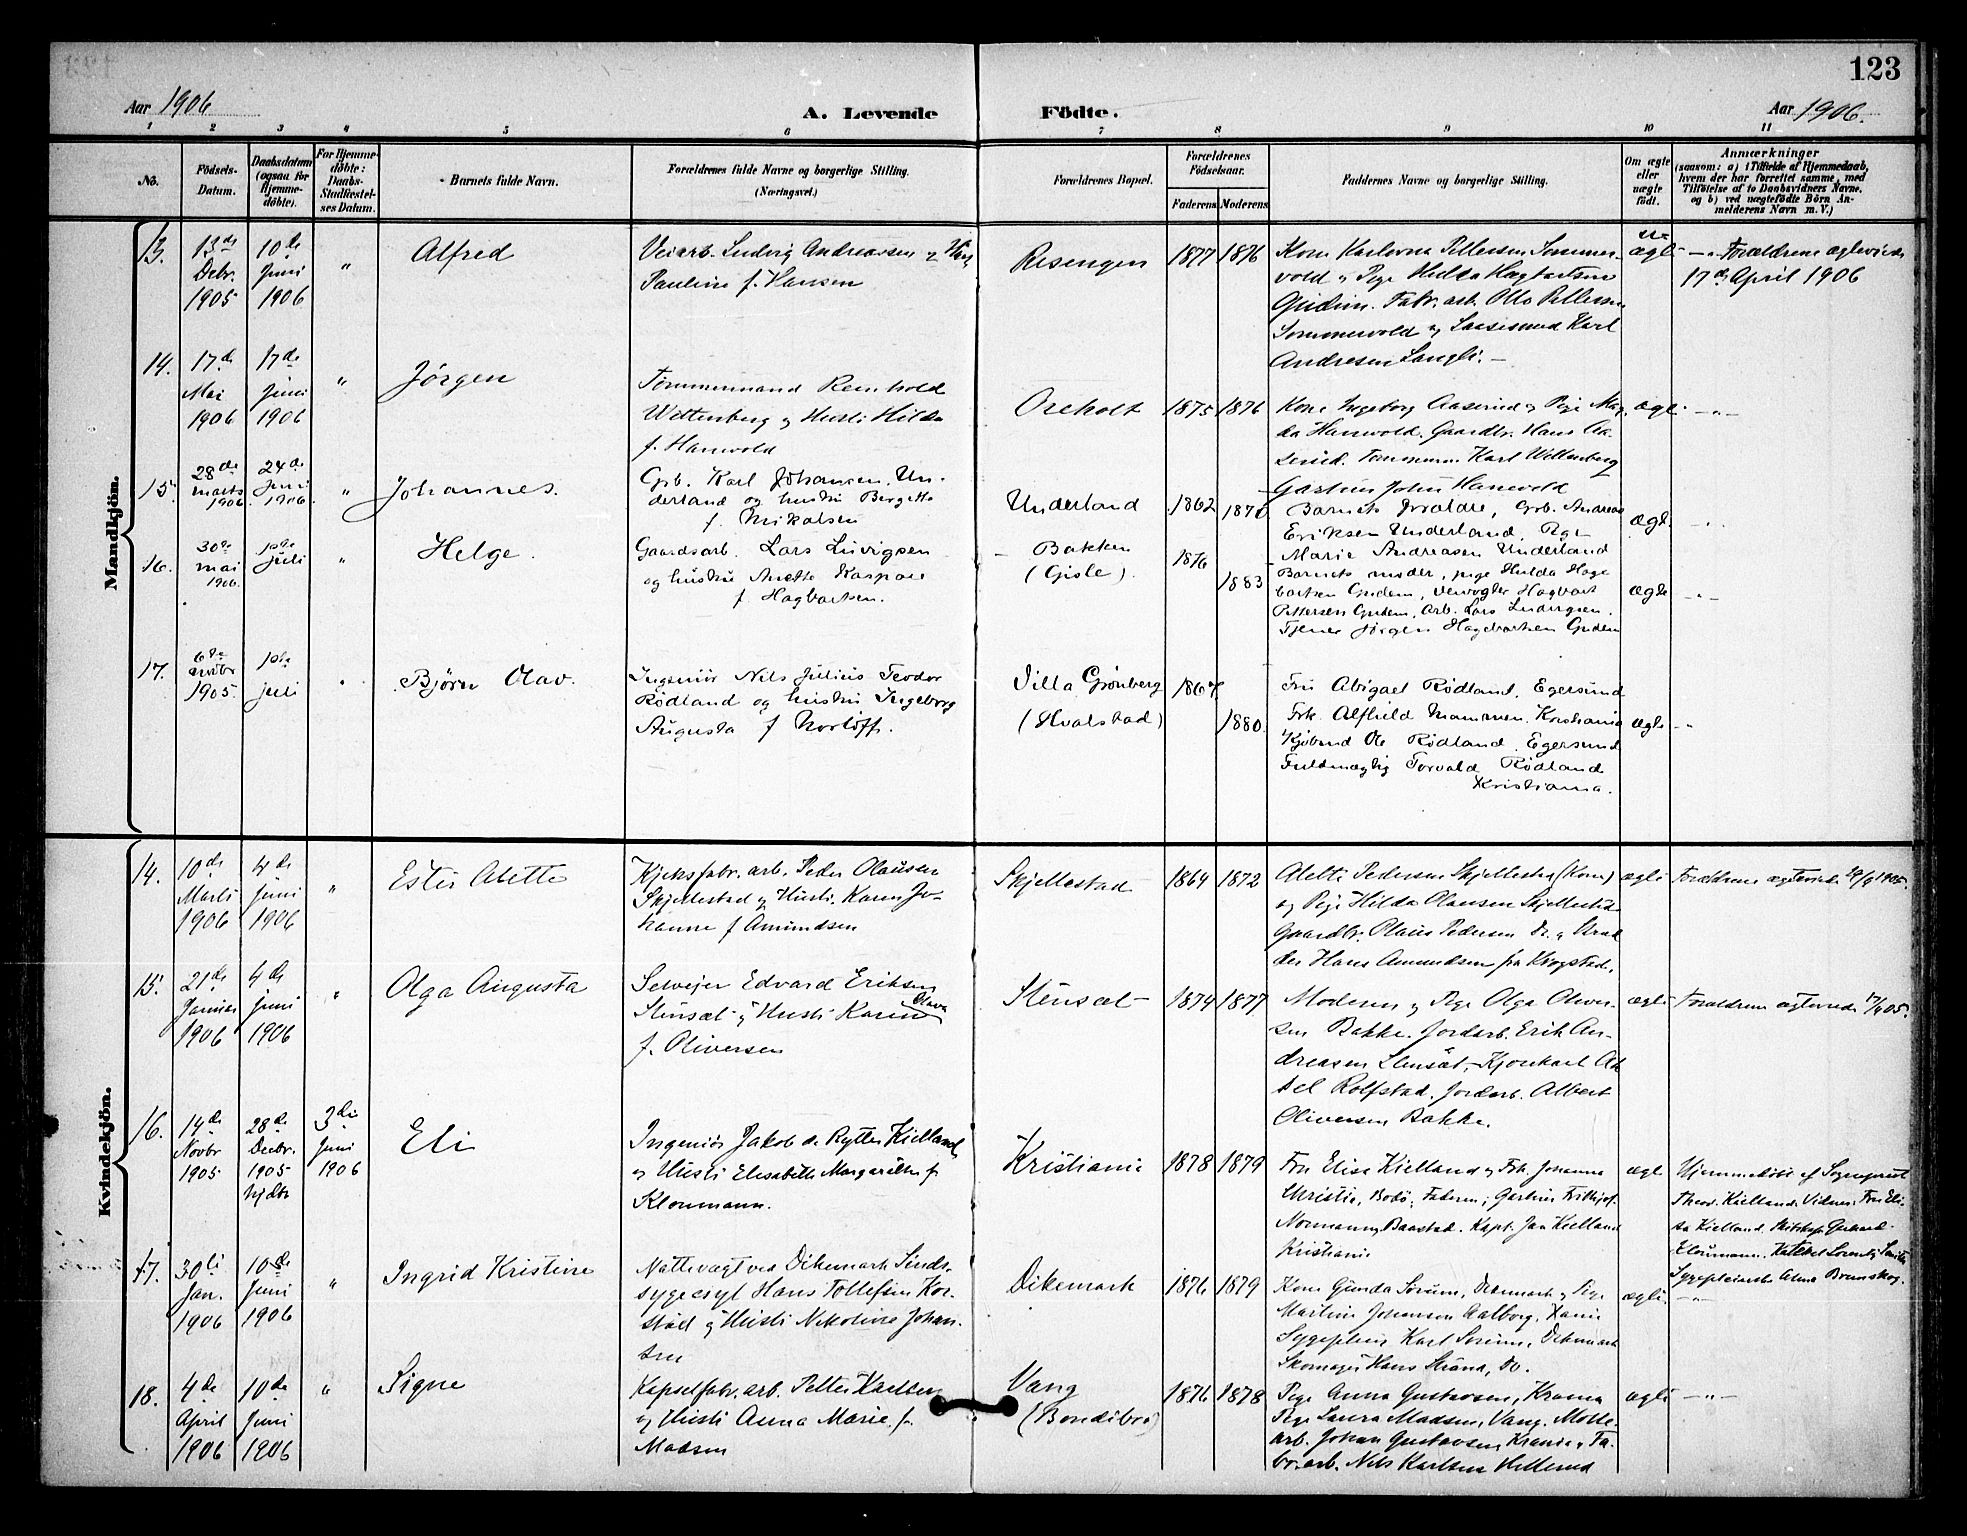 123
Aar 1906
A. Levende Födte.
Aar 1906.
1 2 3 4 5 6 7 8 9 10 11
No.
Födsels-
Datum.
Daabsdatum
(ogsaa for
Hjemme-
döbte).
For Hjemme-
döbte:
Daabs-
Stadfæstel-
ses Datum.
Barnets fulde Navn.
Forældrenes fulde Navne og borgerlige Stilling.
(Næringsvei.)
Forældrenes Bopæl.
Forældrenes
Födselsaar.
Faderens
Moderens
Faddernes Navne og borgerlige Stilling.
Om ægte
eller
uægte
födt.
Anmærkninger
(saasom: a) i Tilfælde af Hjemmedaab,
hvem der har forrettet samme, med
Tilföielse af to Daabsvidners Navne.
og b) ved uægtefödte Börn An-
melderens Navn m. V.)
Mandkjön.
13.
13de
Debr.
1905
10de
Juni
1906
"
Alfred
Veiarb. Ludvig Andreassen og
Pauline f. Hansen
Risengen
1877
1876
Kone Karlovna Pettersen Sommer-
vold og Pige Hulda Hagbartsen
Gudim. Fabr. arb. Otto Pettersen
Sommervold og Karl
Andresen Langli. –
uægte
Forældrene
17de April 1906
14.
17de
Mai
1906
17de
Juni
1906
"
Jörgen
Tømmermand Reinhold
Wittenberg og Hustru Hilda
f. Hanevold
Oreholt
1875
1876
Kone Ingeborg Aaserud og Pige Mag-
da Hanevold. Gaardbr. Hans Aa-
serud. Tømmerm. Karl Wittenberg
John Hanevold
ægte
– " –
15.
28de
marts
1906.
24de
Juni
1906.
"
Johannes.
Gbr. Karl Johansen, Un-
derland og hustru Bergitte
f. Mikalsen
Underland
1862
Barnets forældre, Gbr. Andreas
Eriksen Underland, Pige
Marie Andreasen Underland
ægte
"
16.
30te
mai
1906.
1ste
juli
"
Helge.
Gaardsarb. Lars Luvigsen
og hustru Anette Kaspare
f. Hagbartsen.
Bakken
(Gisle).
1876
1883
Barnets moder, pige Hulda Hag-
bartsen Gudem, Hagbart
Pettersen Gudem, arb. Lars Ludvigsen.
Tjener Jørgen Hagbartsen Gudem
ægte
– " –
17.
6te
1905.
1ste
juli
Bjørn Olav.
Ingeniør Nils Julius Teodor
Rødland og hustru Ingeborg
Augusta f. Norløff.
Villa Grønberg
(Hvalstad)
1867
1880.
Fru Abigael Rødland, Egersund
Frk. Alfhild Mammen. Kristiania
Kjøbmd Ole Rødland, Egersund
Fuldmægtig Torvald Rødland
Kristiania.
ægte
"
Kvindekjön.
14.
10de
Marts
1906
4de
Juni
1906
"
Ester Alette
Kjeksfabr. arb. Peder Olausen
Skjellestad og Hustru Karen Jo-
hanne f. Amundsen
Skjellestad
1864
1872
Alette Pedersen Skjellestad (Kone)
og Pige Hilda Olausen Skjellestad
Gaardbr. Olaus Pedersen Do. og
Hans Amundsen fra Krogstad.
ægte
Forældrene
15.
21de
Januar
1906
4de
Juni
1906
"
Olga Augusta
Selveier Edvard Eriksen
Stensæt og Hustru Karen Olava
f. Oliversen
Stensæt
1874
1877
Moderen og Pige Olga Oliver-
sen Bakke. Jordarb. Erik An-
dreasen Stensæt, Kjørekarl Ak-
sel Rolfstad. Jordarb. Albert
Oliversen Bakke.
ægte
Forældrene
16.
14de
Novbr
1905
28de
Decbr.
1905
hjdbt
3die
Juni
1906
Eli
Ingeniør Jakob de Rytter Kielland
og Hustru Elisabeth Margarethe f.
Kloumann.
Kristiania
1878
1879
Fru Elise Kielland og Frk. Johanna
Christie, Bodø; Faderen; Fritjof
Normann, Baastad. Kapt. Jan Kielland
Kristiania
ægte
Hjemmedøbt af Sogneprest
Theod. Kielland. Vidner: Fru Eli-
sa Kielland. Gerhard
Kloumann.
Sygepleierske Alma Brunskog.
17.
30te
Jan.
1906
10de
Juni
1906
"
Ingrid Kristine
Nattevagt ved Dikemark Sinds-
sygeasyl Hans Tollefsen Kor-
stad og Hustru Nikoline Johan-
sen
Dikemark
1876
1879
Kone Gunda Sørum, Dikemark og Pige
Martine Johansen Aalborg,
Sygepleier Karl Sørum, Dikemark
Skomager Hans Strand, Do.
ægte.
– " –
18.
4de
April
1906
10de
Juni
1906
"
Signe
Kapselfabr. arb. Petter Karlsen
og Hustru Anna Marie f.
Madsen
Vang
(Bondibro)
1876
1878
Pige Anna Gustavsen, Krania
Pige Laura Madsen, Vang.
arb. Johan Gustavsen, Krania og Fa-
br. arb. Nils Karlsen Hellerud
ægte
– " –